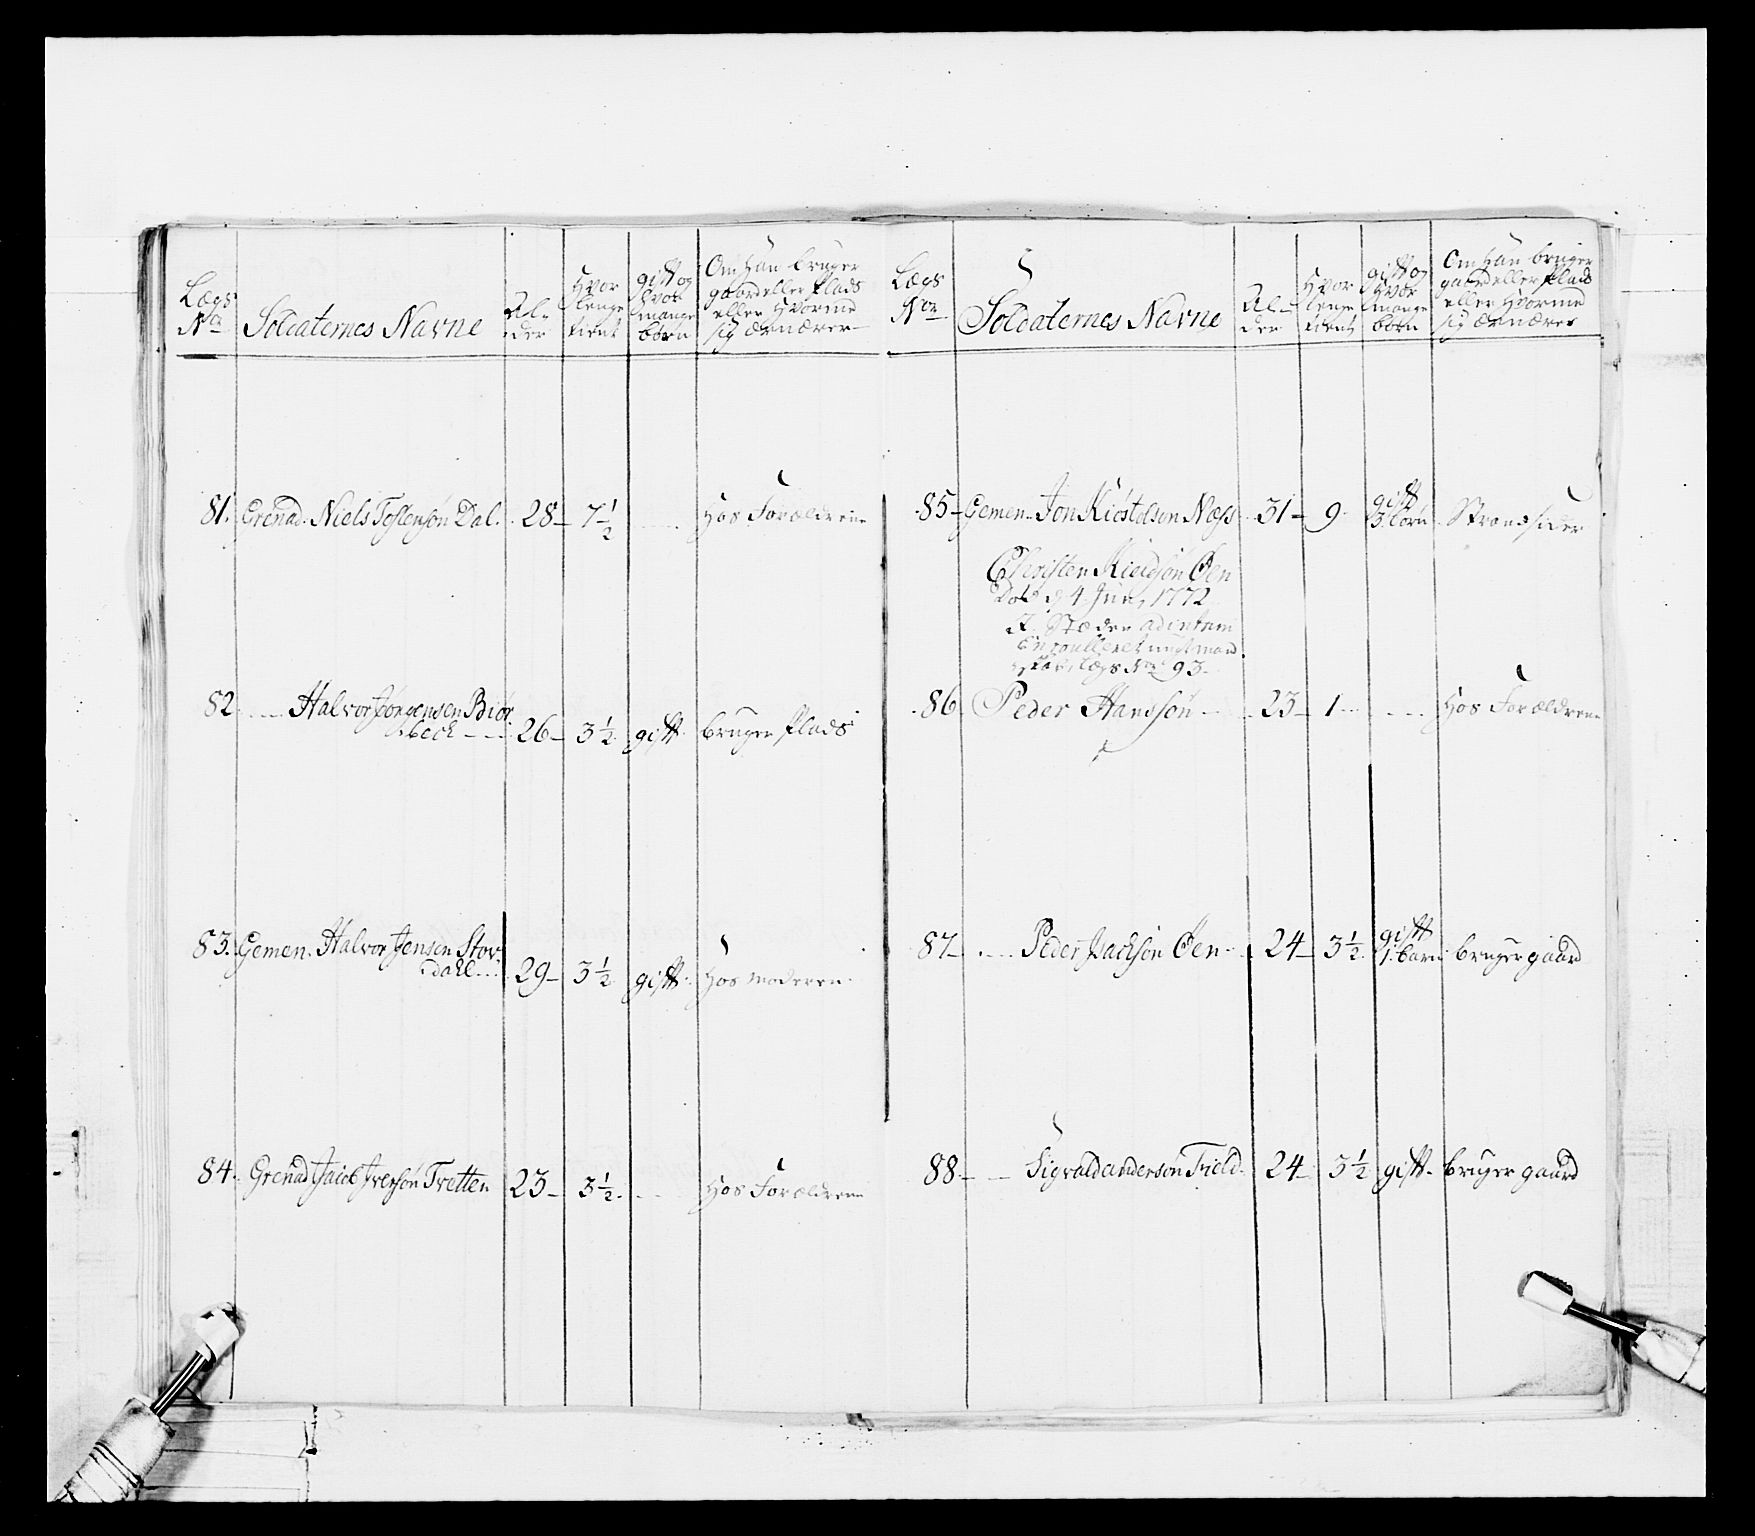 Lægs
No
Soldaternes Navne
Al-
der
Hvor
lenge
tient
gift og
hvor
mange
børn
Om Han bruger
gaard eller Plads
eller Hvormed
sig ærnærer
81. Grenad. Niels Toflensøn Dal. 28 7 1/2 Hos Forældrene
82 Halvor Jørgensen Biør
beck 26 3 1/2 gift bruger Plads
83. Gemen. Halvor Jensen Stov
dahl 29 3 1/2 gift Hos moderen
84. Grenad Jacob Iversøn Tvetten 23 3 1/2 Hos Forældrene
Lægs
No
Soldaternes Navne
Al-
der
Hvor
lenge
tient
gift og
Hvor
mange
børn
Om Han bruger
gaard eller Plads
eller Hvormed
sig ærnærer
85 Gemen. Jon Kiøstelsøn Næss 31 9 gift
3 børn Strandsider
Christen Øen
4 Juny 1772
Steden
Lægs No 93
86 Peder Hanssøn 23 1 Hos Forældrene
87 Peder Jachsøn Øen 24 3 1/2 gift
1. barn bruger gaard
88 Sigvald anderson Field 24 3 1/2 gift bruger gaard